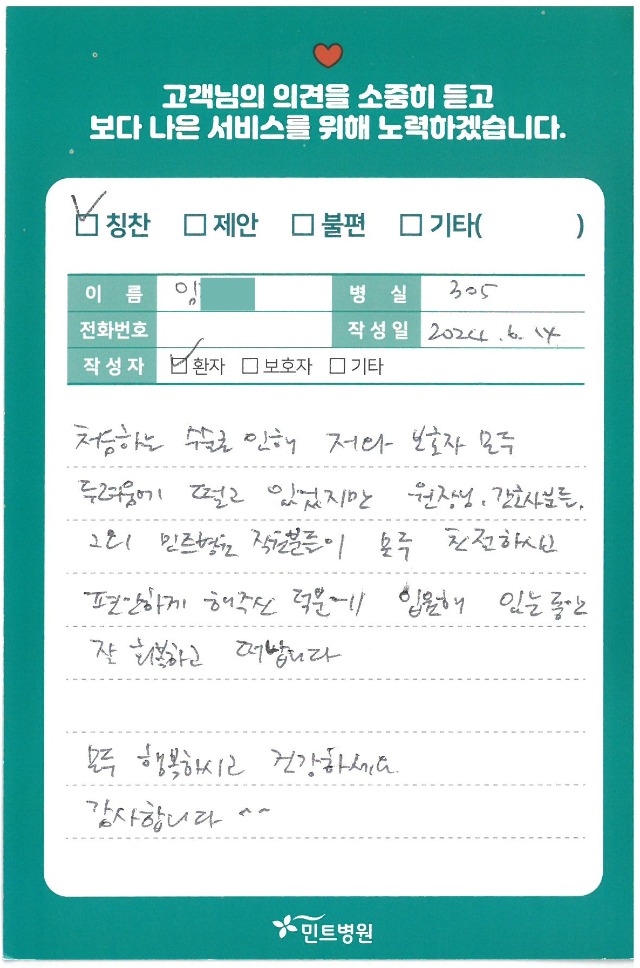 고객님의 의견을 소중히 듣고
보다 나은 서비스를 위해 노력하겠습니다.
칭찬 제안 불편 기타( )
이름 임 병실 305
전화번호 작성일 2024. 6. 14
작성자 환자 보호자 기타
처음하는 수술로 인해 저와 보호자 모두
두려움에 떨고 있었지만 원장님, 간호사분들,
그외 민트병원 직원분들이 모두 친절하시고
편안하게 해주신 덕분에 입원해 있는동안
잘 회복하고 떠납니다
모두 행복하시고 건강하세요.
감사합니다 ^^
민트병원